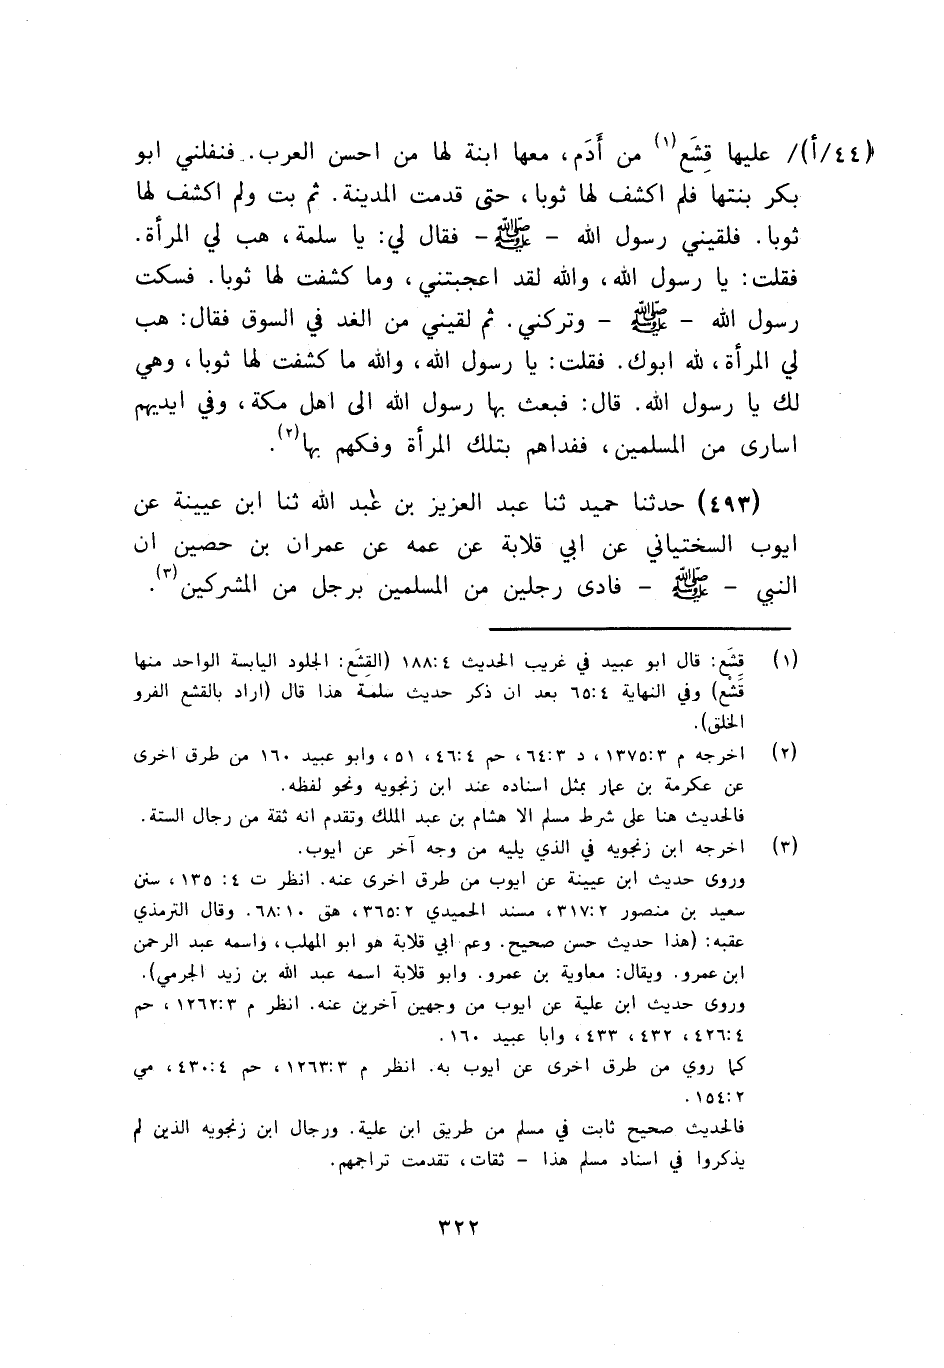 (٤٤/أ)/ عليها قِشَع(١) من أَدَم، معها ابنة لها من احسن العرب. فنفلني ابو
بكر بنتها فلم اكشف لها ثوبا، حتى قدمت المدينة. ثم بت ولم اكشف لها
ثوبا. فلقيني رسول الله - ﷺ - فقال لي: يا سلمة، هب لي المرأة.
فقلت: يا رسول الله، والله لقد اعجبتني، وما كشفت لها ثوبا. فسكت
رسول الله - ﷺ - وتركني. ثم لقيني من الغد في السوق فقال: هب
لي المرأة، لله ابوك. فقلت: يا رسول الله، والله ما كشفت لها ثوبا، وهي
لك يا رسول الله. قال: فبعث بها رسول الله الى اهل مكة، وفي ايديهم
اسارى من المسلمين، ففداهم بتلك المرأة وفكهم بها(٢).
(٤٩٣) حدثنا حميد ثنا عبد العزيز بن عبد الله ثنا ابن عيينة عن
ايوب السختياني عن ابي قلابة عن عمه عن عمران بن حصين ان
النبي - ﷺ - فادى رجلين من المسلمين برجل من المشركين(٣).
(١) قِشَع: قال ابو عبيد في غريب الحديث ٤:١٨٨ (القِشَع: الجلود اليابسة الواحد منها
قَشْع) وفي النهاية ٤:٦٥ بعد ان ذكر حديث سلمة هذا قال (اراد بالقشع الفرو
الخلق).
(٢) اخرجه م ٣:١٣٧٥، د ٣:٦٤، حم ٤:٤٦، ٥١، وابو عبيد ١٦٠ من طرق اخرى
عن عكرمة بن عمار بمثل اسناده عند ابن زنجويه ونحو لفظه.
فالحديث هنا على شرط مسلم الا هشام بن عبد الملك وتقدم انه ثقة من رجال الستة.
(٣) اخرجه ابن زنجويه في الذي يليه من وجه آخر عن ايوب.
وروى حديث ابن عيينة عن ايوب من طرق اخرى عنه. انظر ت ٤: ١٣٥، سنن
سعيد بن منصور ٢:٣١٧، مسند الحميدي ٢:٣٦٥، هق ١٠:٦٨. وقال الترمذي
عقبه: (هذا حديث حسن صحيح. وعم ابي قلابة هو ابو المهلب، واسمه عبد الرحمن
ابن عمرو. ويقال: معاوية بن عمرو. وابو قلابة اسمه عبد الله بن زيد الجرمي).
وروى حديث ابن علية عن ايوب من وجهين آخرين عنه. انظر م ٣:١٢٦٢، حم
٤:٤٢٦، ٤٣٢، ٤٣٣، وابا عبيد ١٦٠.
كما روي من طرق اخرى عن ايوب به. انظر م ٣:١٢٦٣، حم ٤:٤٣٠، مي
٢:١٥٤.
فالحديث صحيح ثابت في مسلم من طريق ابن علية. ورجال ابن زنجويه الذين لم
يذكروا في اسناد مسلم هذا - ثقات، تقدمت تراجمهم.
٣٢٢